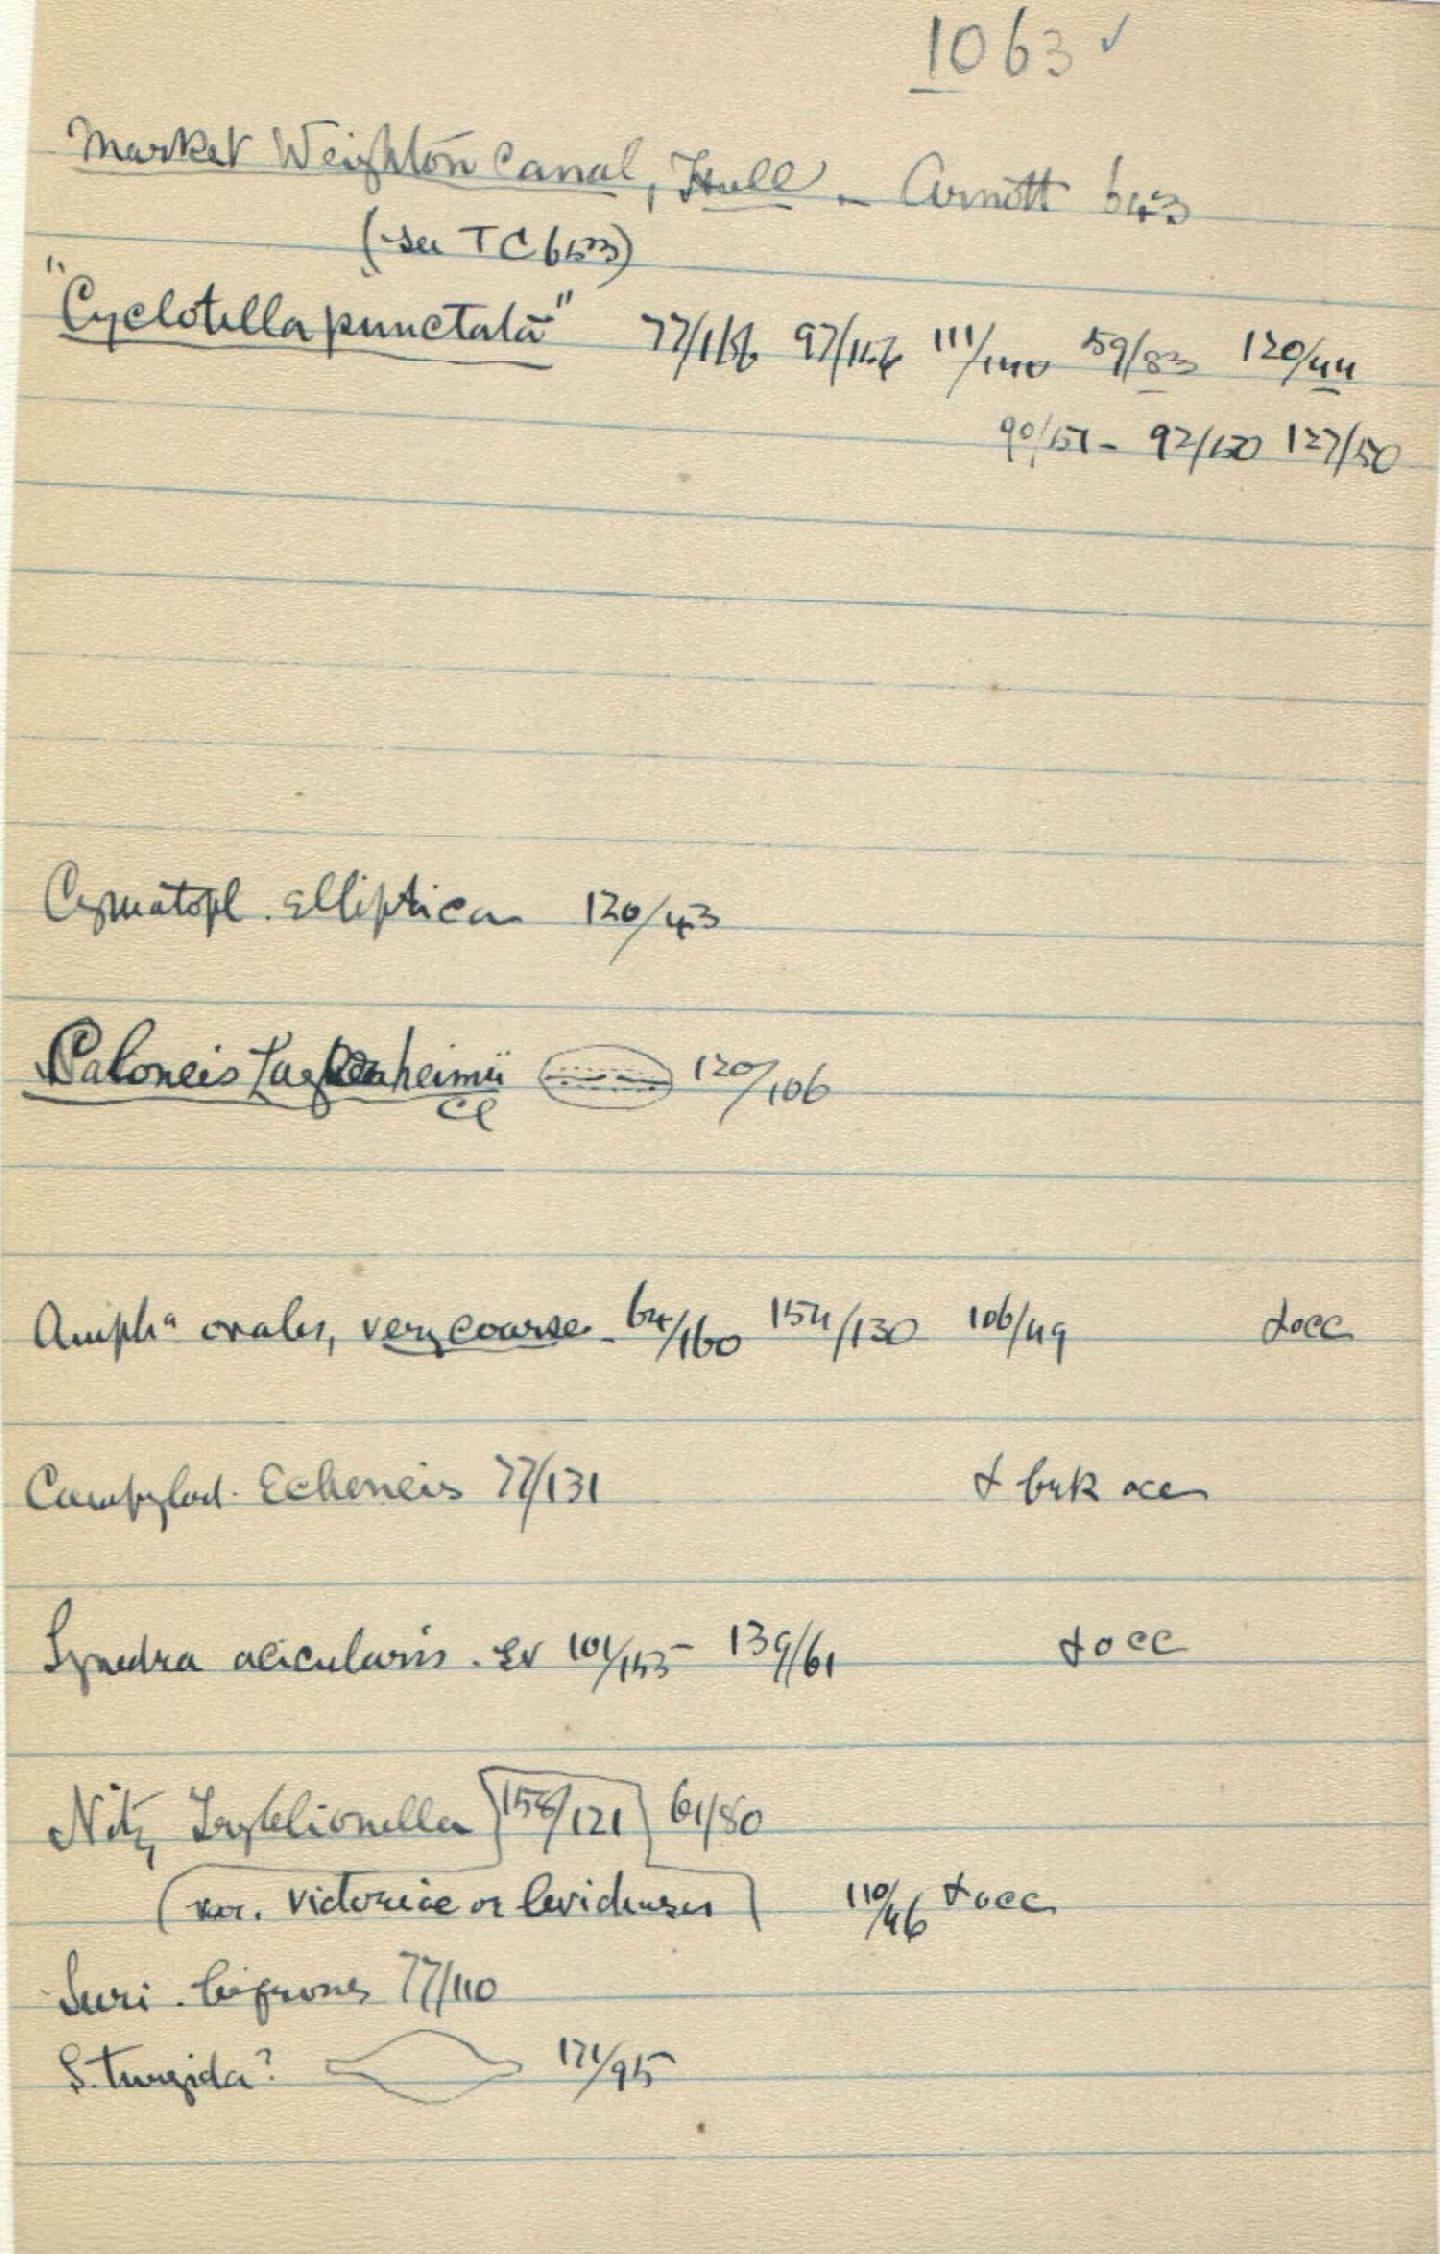 1063 ✓
Market Weighton Canal, Hull - Arnott 643
(see TC 653)
"Cyclotella punctata" 77/ 97/ 111/140 59/83 120/44
90/151 - 92/120 127/50
Cymatopl. elliptica 120/43
Caloneis heimii 120/106
Cl
Ampha ovalis, very coarse - 64/160 154/130 106/49 & occ
Campylod. Echeneis 77/131 & brk occ
Synedra acicularis. 101/153 - 139/61 & occ
Nitz Tryblionella 158/121 61/80
var. victoriae or levidensis 110/46 & occ
Suri. bifrons 77/110
S. turgida? 171/95